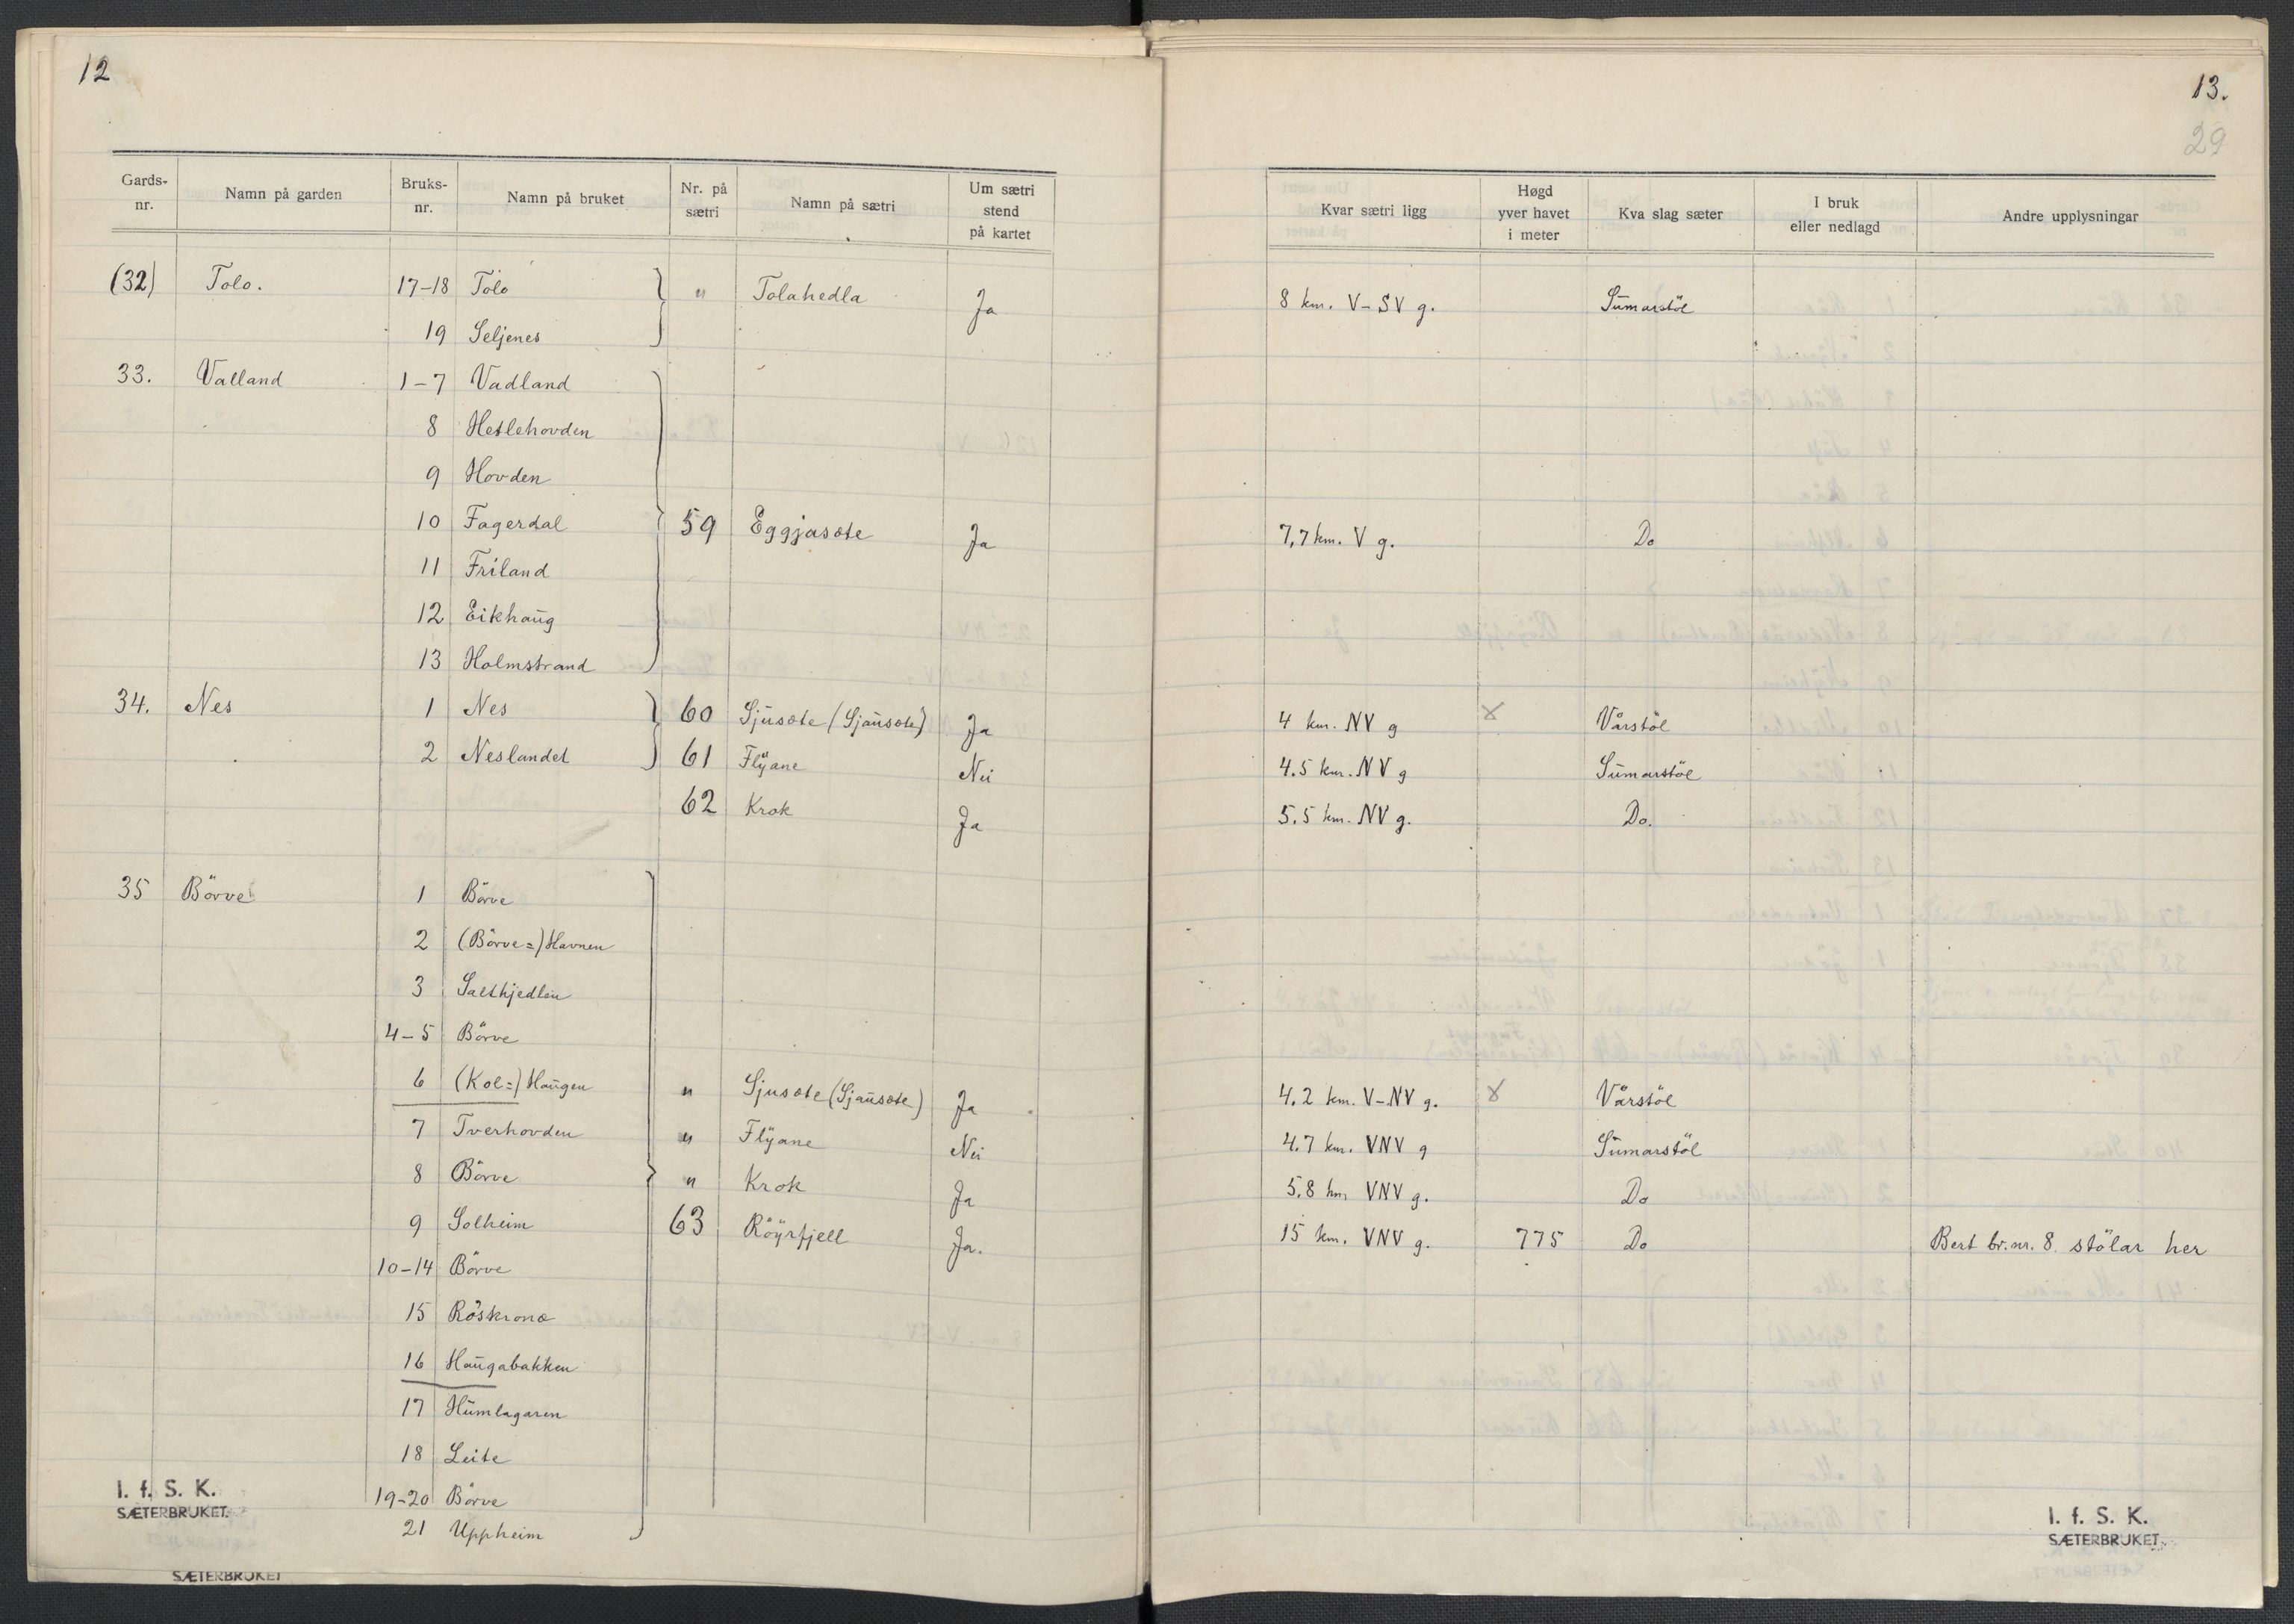 12
Gards-nr. Namn på garden Bruks-nr. Namn på bruket Nr. på sætri Namn på sætri Um sætri stend på kartet
(32) Tolo. 17-18 Tolo " Tolahedla Ja
19 Seljenes
33. Valland 1-7 Vadland
8 Hetlehovden
9 Hovden
10 Fagerdal 59 Eggjasæte Ja
11 Friland
12 Eikhaug
13 Holmstrand
34. Nes 1 Nes 60 Sjusæte (Sjausæte) Ja
2 Neslandet 61 Flÿane Nei
62 Krok Ja
35 Börve 1 Börve
2 (Börve=) Havnen
3 Salthjedlen
4-5 Börve
6 (Kol=) Haugen " Sjusæte (Sjausæte) Ja
7 Tverhovden " Flÿane Nei
8 Börve " Krok Ja
9 Solheim 63 Röyrfjell Ja.
10-14 Börve
15 Röskrona
16 Haugabakken
17 Humlagaren
18 Leite
19-20 Börve
21 Uppheim
I. f. S. K.
SÆTERBRUKET
SÆTERBRUKET
13.
29
Kvar sætri ligg Høgd yver havet i meter Kva slag sæter I bruk eller nedlagd Andre upplysningar
8 km. V-SV g. Sumarstöl
7,7 km. V g. Do
4 km. NV g x Vårstöl
4.5 km. NV g Sumarstöl
5.5 km. NV g. Do.
4.2 km. V-NV g. x Vårstöl
4.7 km. VNV g Sumarstöl
5.8 km VNV g. Do
15 km. VNV g. 775 Do Bert br.nr. 8. stölar her
I. f. S. K.
SÆTERBRUKET